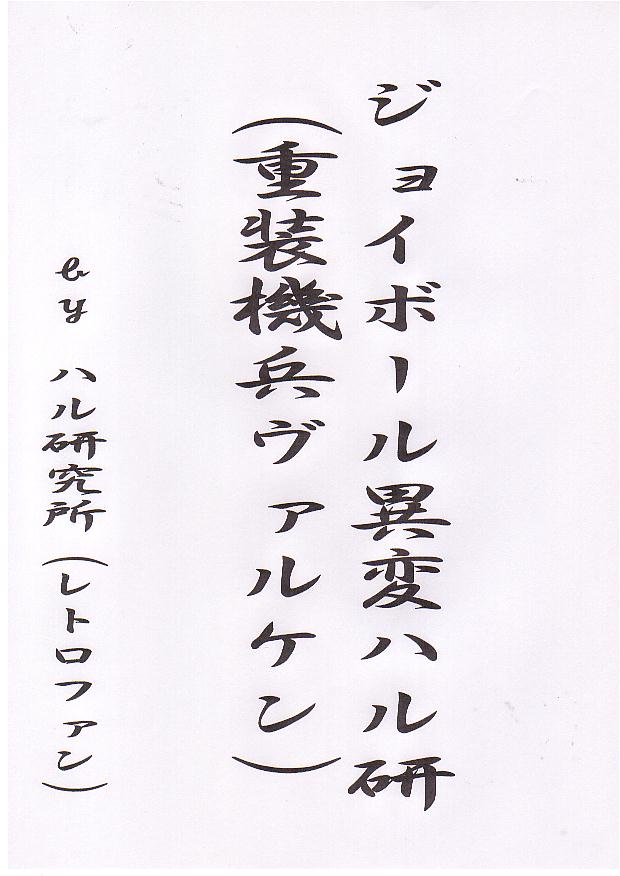 ジョイボール異変ハル研
(重装機兵ヴァルケン)
by ハル研究所(レトロファン)